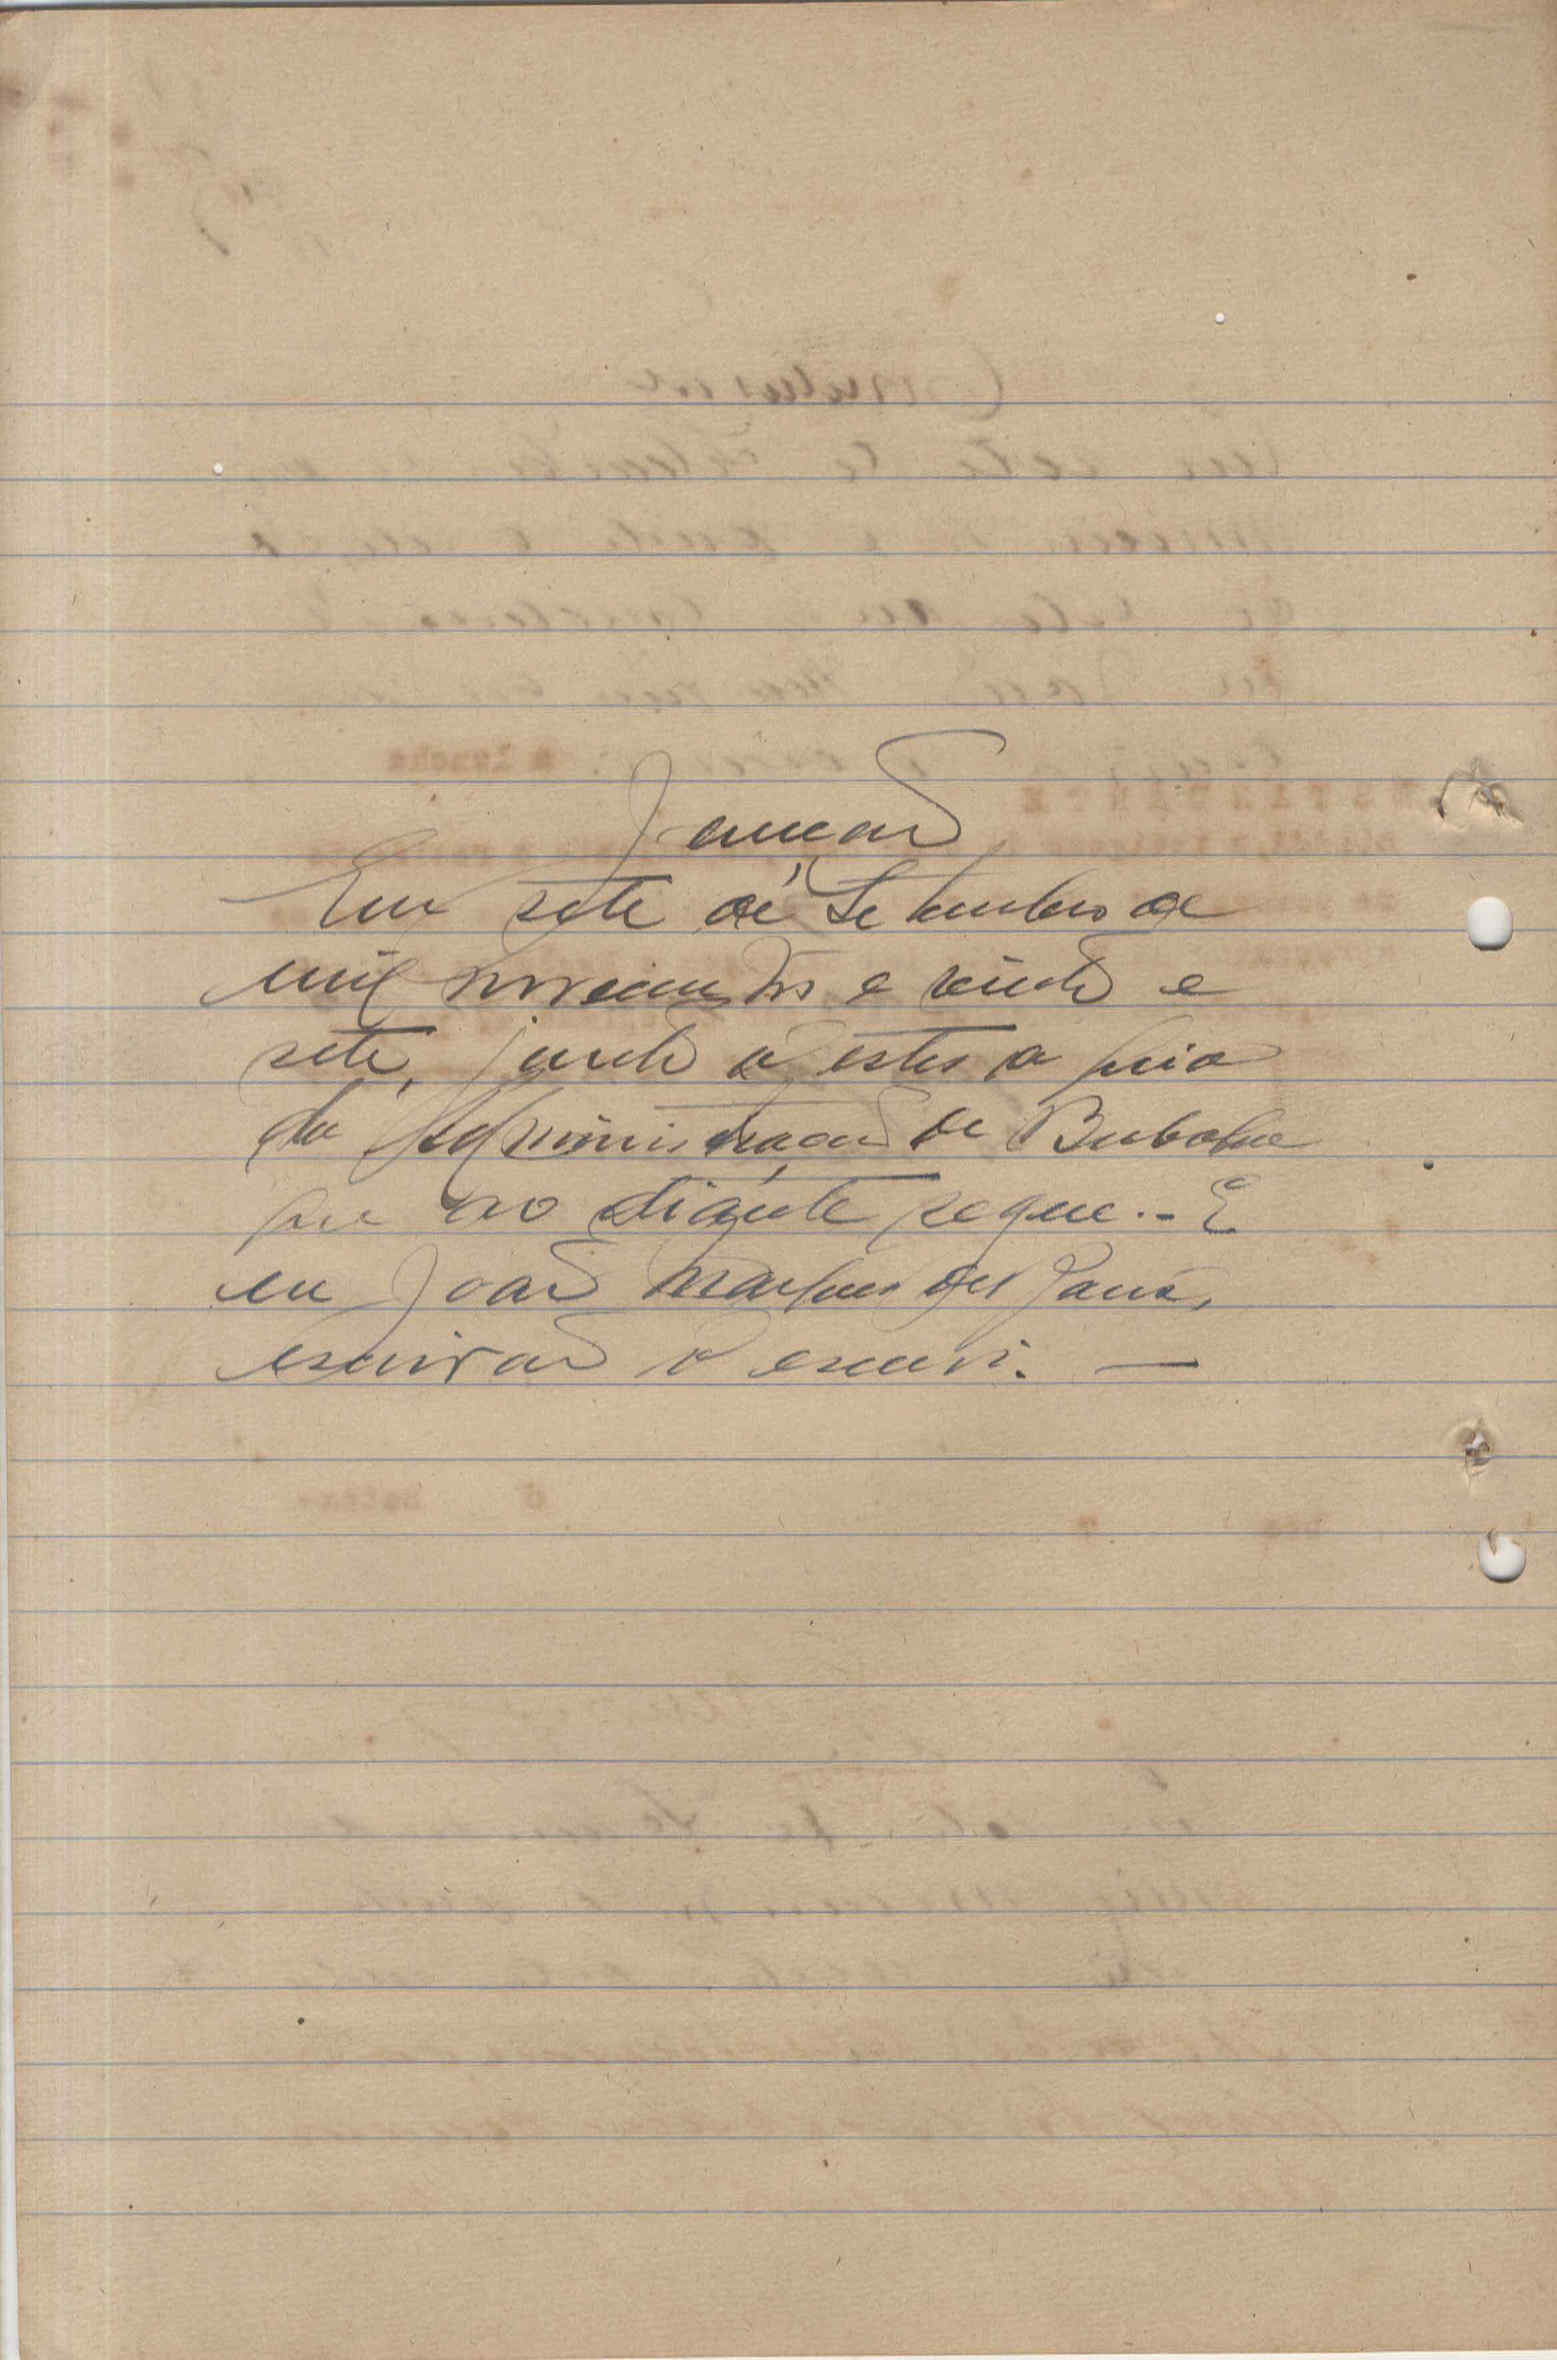 Juncão
Em sete de Setembro de
mil novecentos e vinte e
sete, junto a estes a guia
da Administração de Bubaque
que ao diante segue.- E
eu João Marques de
escrivão o escrevi. —